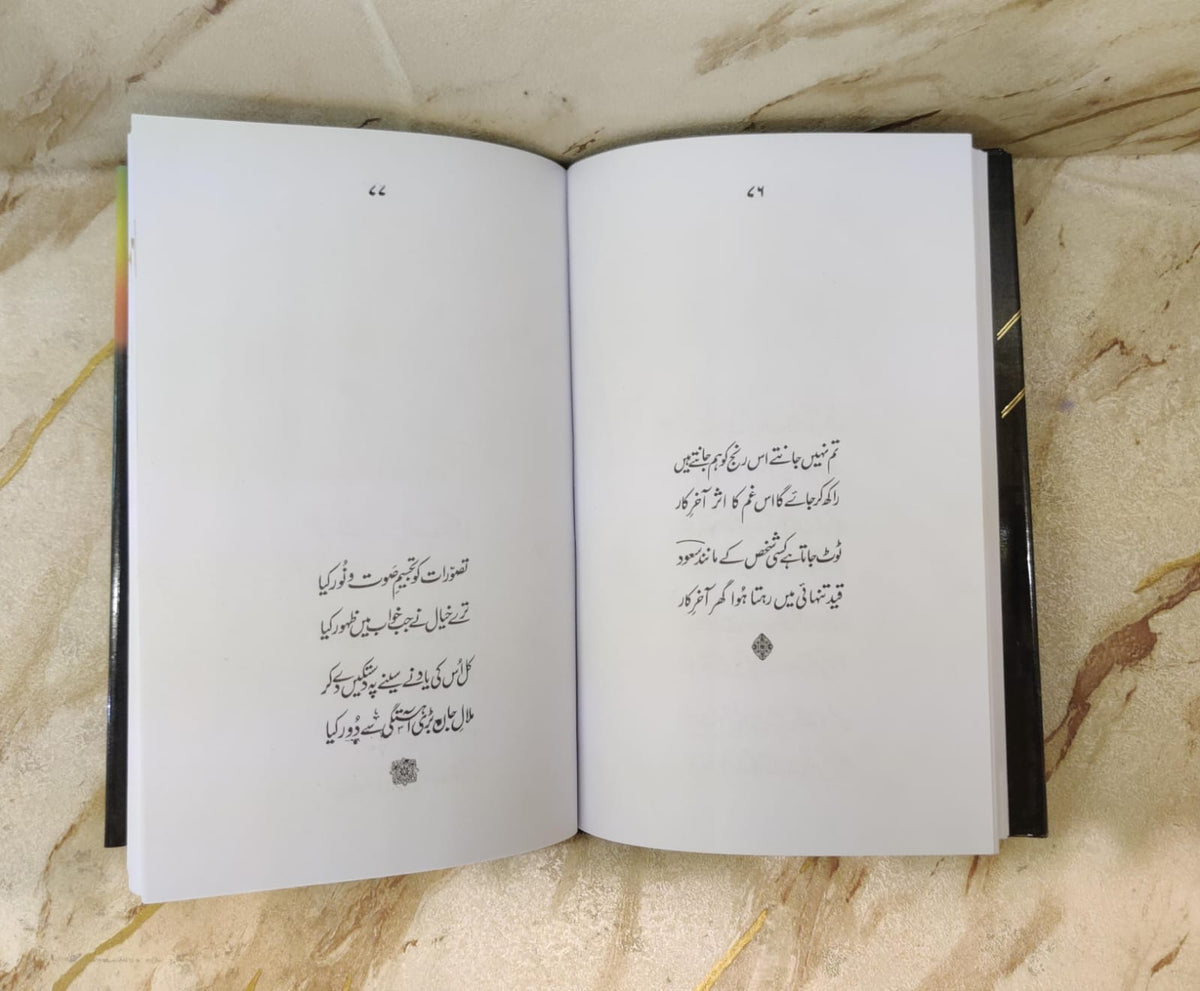 ۷۶
تم نہیں جانتے اس رنج کو ہم جانتے ہیں
راکھ کر جائے گا اس غم کا اثر آخرِ کار
ٹوٹ جاتا ہے کسی شخص کے مانند سعودؔ
قیدِ تنہائی میں رہتا ہُوا گھر آخرِ کار
۷۷
تصوّرات کو تجسیمِ صَوت و نُور کیا
ترے خیال نے جب خواب میں ظہور کیا
کل اُس کی یاد نے سینے پہ دستکیں دے کر
ملالِ جاں بڑی آہستگی سے دُور کیا